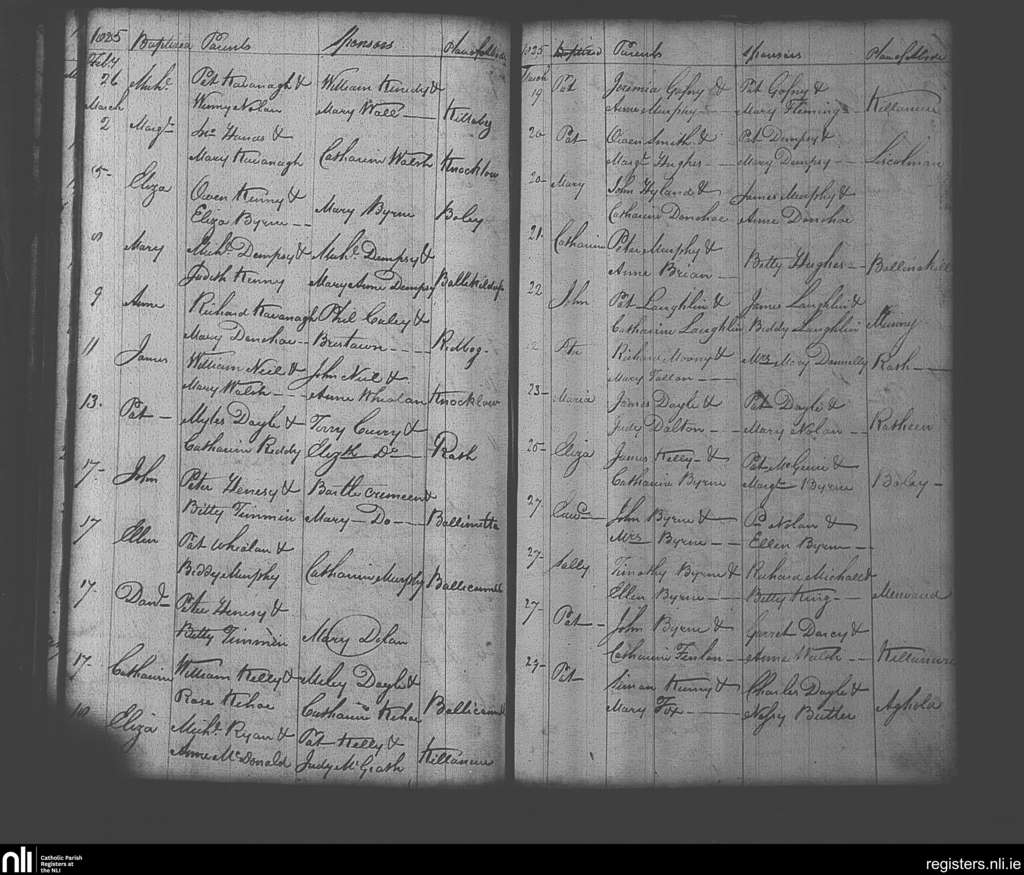 1835 Baptised Parents Sponsors Place of Abode
Feby
26 Michl. Pat Kavanagh & William Kinedy &
Winny Nolan Mary Wall Killaby
March
2 Margt. Jno. Hands &
Mary Kavanagh Catharin Walsh Knocklow
5- Eliza Owen Kenny &
Eliza Byrne Mary Byrne Boley
8 Mary Michl. Dempsy & Michl. Dempsy &
Judith Kenny Mary Anne Dempsy
9 Anne Richard Kavanagh Phil Caley &
Mary Donohoe Redbog-
11 James William Neil & John Neil &
Mary Walsh Anne Whealan Knocklow
13. Pat Myles Doyle & Terry &
Catharin Reddy Elizth. Do Rath
17- John Peter Henesy &
Bitty Timmin Mary Do
17 Ellen Pat Whealan &
Biddy Murphy Catharin Murphy
17. Peter Henesy &
Betty Timmin Mary Dolan
17- Catharin William Kelly & Miley Doyle &
Rose Kehoe Catharin Kehoe
Eliza Michl. Ryan & Pat Kelly &
Anne McDonald Judy McGrath
1835 Baptised Parents Sponsors Place of Abode
March
19 Pat Jeremia Gafny & Pat Gafny &
Anne Murphy Mary Fleming
20 Pat Owen Smith & Pat Dempsy &
Margt. Hughes Mary Dempsy
20- Mary John Hyland & James Murphy &
Catharin Donohoe Anne Donohoe
21. Catharin Peter Murphy &
Anne Brian Betty Hughes
22 John Pat Laughlin & James Laughlin &
Catharin Laughlin Biddy Laughlin Munny
Richard Moony & Mrs Mary Donnelly Rath
Mary Fallon
23- Maria James Doyle & Pat Doyle &
Judy Dalton Mary Nolan Ratheen
25- Eliza James Kelly & Pat McGuire &
Catharin Byrne Margt. Byrne Boley
27 John Byrne & Nolan &
Mrs Byrne Ellen Byrne
27- Sally Timothy Byrne & Richard
Ellen Byrne Betty King
27- Pat John Byrne & Garret Darcy &
Catharin Anne Welsh
29- Pat Simon Kenny & Charles Doyle &
Mary Fox Butler Aghold
nli Catholic Parish
Registers at
the NLI
registers.nli.ie